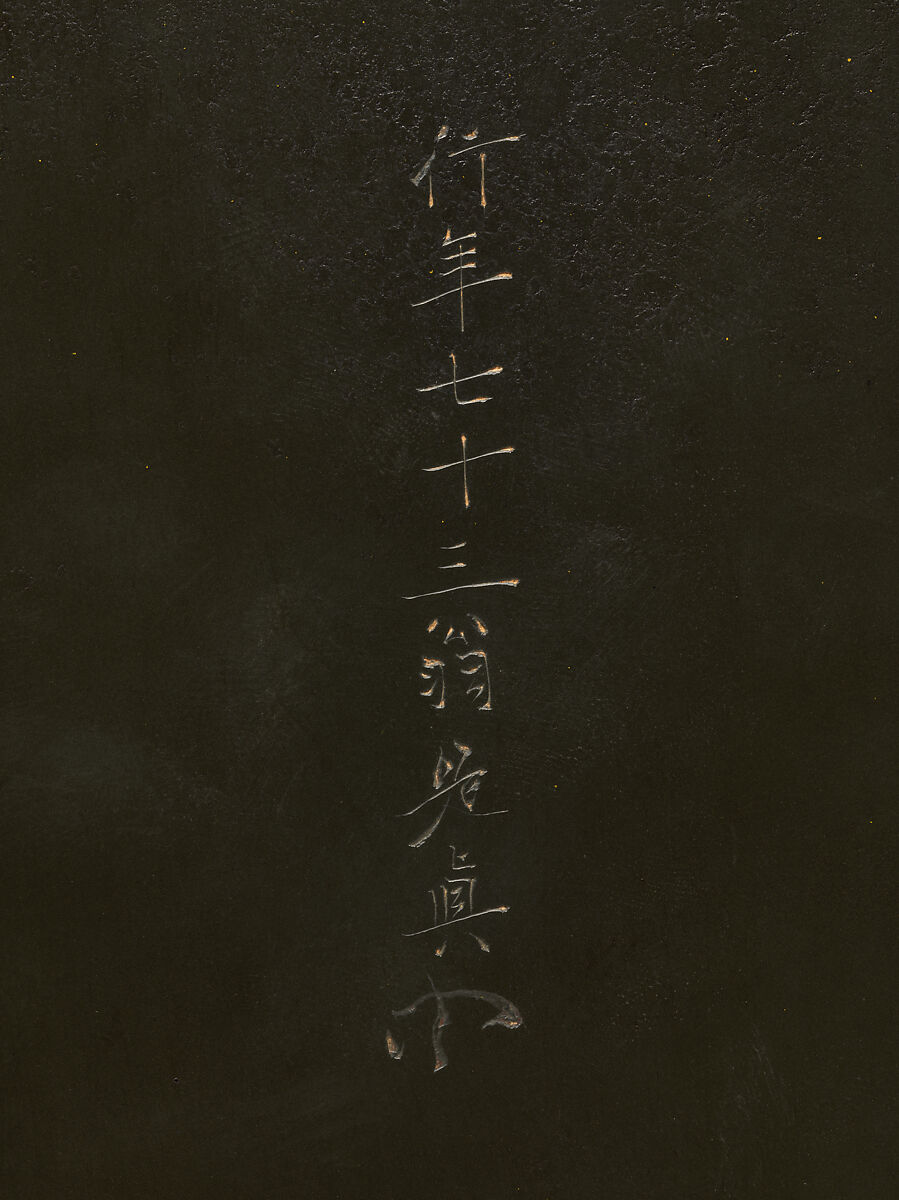 行年七十三翁是眞